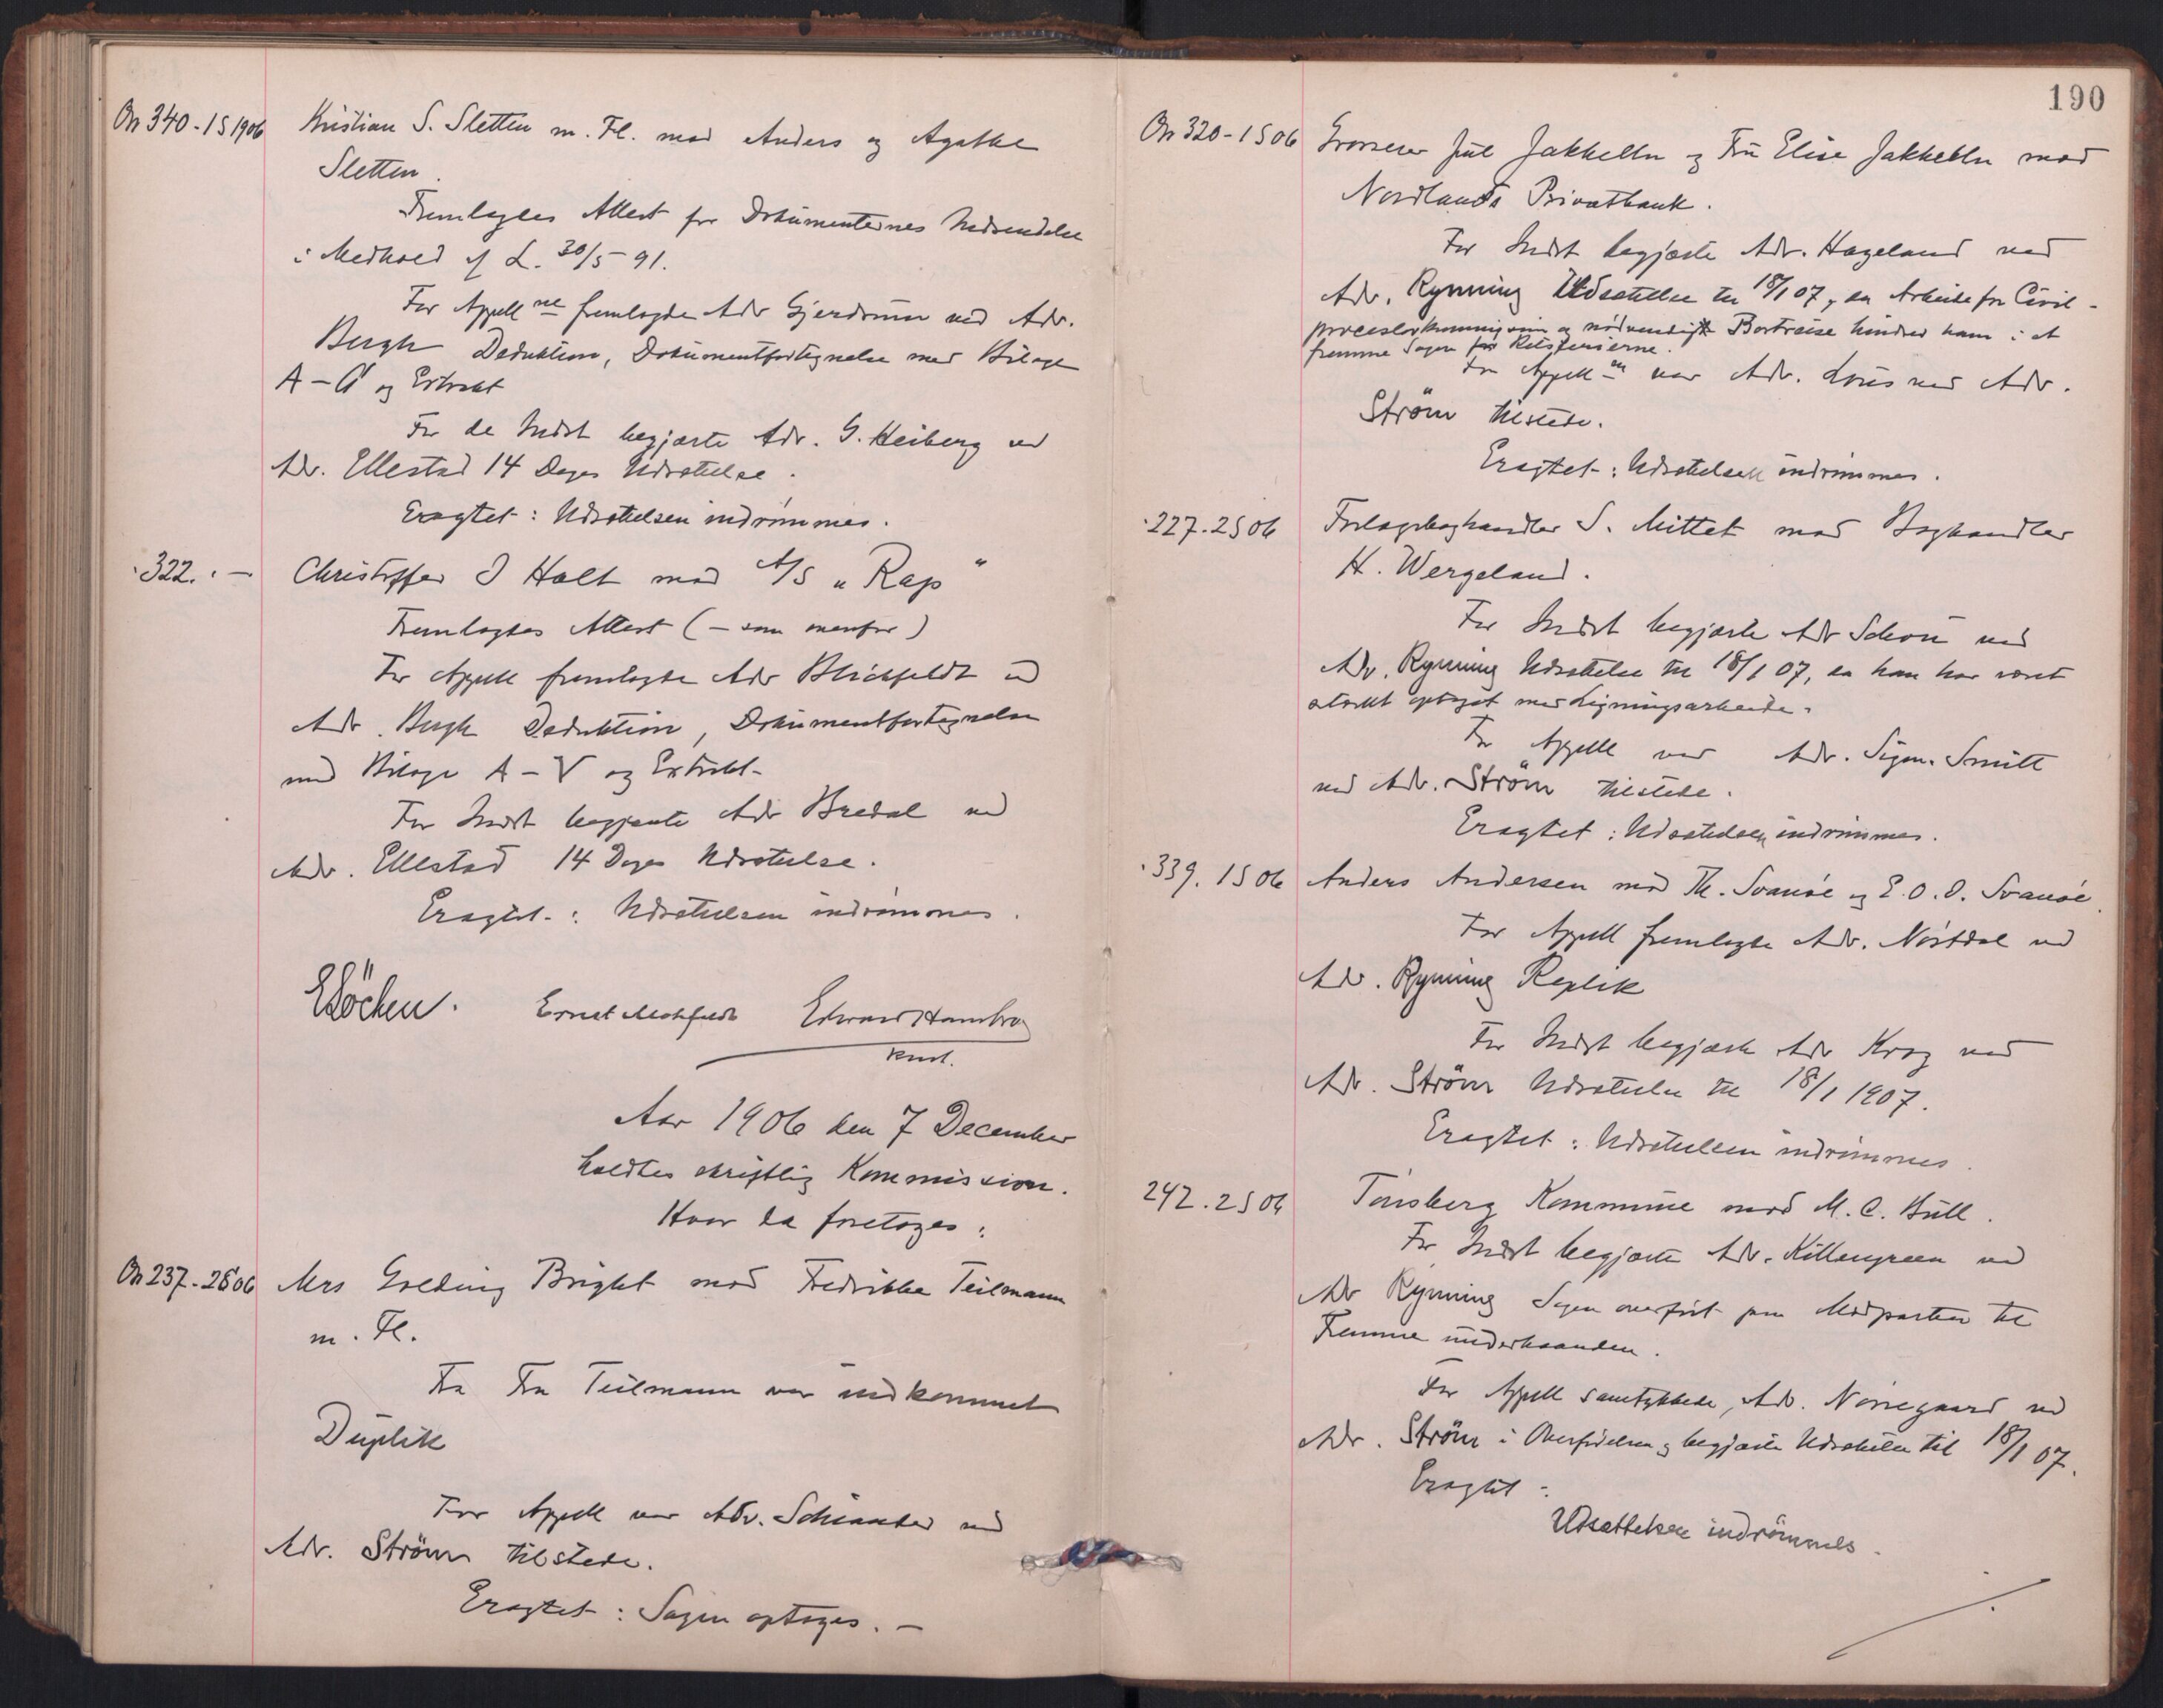 On 340-1S 1906 Kristian S. Sletten m. Fl. mod Anders og Agathe
Sletten.
Fremlagdes Attest for Dokumenternes Nedsendelse
i Medhold af L. 30/5 91.
For Appellne fremlagde Adv Gjerdrum ved Adv.
Bergh Deduktion, Dokumentfortegnelse med Bilage
A-Å og Extrakt
For de Indst begjærte Adv. G. Heiberg ved
Adv. Ellestad 14 Dages Udsættelse.
Eragtet: Udsættelsen indrømmes.
322. - Christoffer J Holt mod A/S "Rap"
Fremlagdes Attest (- som ovenfor)
For Appell fremlagde Adv Blichfeldt ved
Adv. Bergh Deduktion, Dokumentfortegnelse
med Bilage A-V og Extrakt-
For Indst begjærte Adv Bredal ved
Adv. Ellestad 14 Dages Udsættelse.
Eragtet: Udsættelsen indrømmes.
ELöchen. Ernst Edvard Hambro
konst.
Aar 1906 den 7 December
holdtes skriftlig Kommission.
Hvor da foretoges:
On 237-2S06 Mrs Golding Bright mod Fredrikke Teilmann
m. Fl.
Fra Fru Teilmann var indkommet
Duplik
For Appell var Adv. Schiander ved
Adv. Ström tilstede.
Eragtet: Sagen optages. -
190
On 320-1S06 Grosserer Juul Jakhelln og Fru Elise Jakhelln mod
Nordlands Privatbank.
For Indst begjærte Adv. Hageland ved
Adv. Rynning Udsættelse til 18/1 07, da Arbeide for Civil-
proceslovkommission og nødvendigt Bortreise hindrer ham i at
fremme Sagen før Retsferierne.
For Appellne var Adv. Lous ved Adv.
Ström tilstede.
Eragtet: Udsættelsen indrømmes.
227. 2S06 Forlagsboghandler S. Mittet mod Boghandler
H. Wergeland.
For Indst begjærte Adv Schou ved
Adv. Rynning Udsættelse til 18/1 07, da han har været
stærkt optaget med Ligningsarbeide.
For Appell var Adv. Sigm. Smitt
ved Adv. Ström tilstede.
Eragtet: Udsættelsen indrømmes.
339. 1S06 Anders Andersen mod Th. Svanöe og E. O. O. Svanöe.
For Appell fremlagde Adv. Nöstdal ved
Adv. Rynning Replik
For Indst begjærte Adv Krog ved
Adv. Ström Udsættelse til 18/1 1907.
Eragtet: Udsættelsen indrømmes.
242. 2S06 Tönsberg Kommune mod M. C. Bull.
For Indst begjærte Adv. Kildengreen ved
Adv Rynning Sagen overført paa Modparten til
Fremme underhaanden.
For Appell samtykkede Adv. Nörregaard ved
Adv. Ström i Overførelsen og begjærte Udsættelse til 18/1 07.
Eragtet:
Udsættelsen indrømmes.